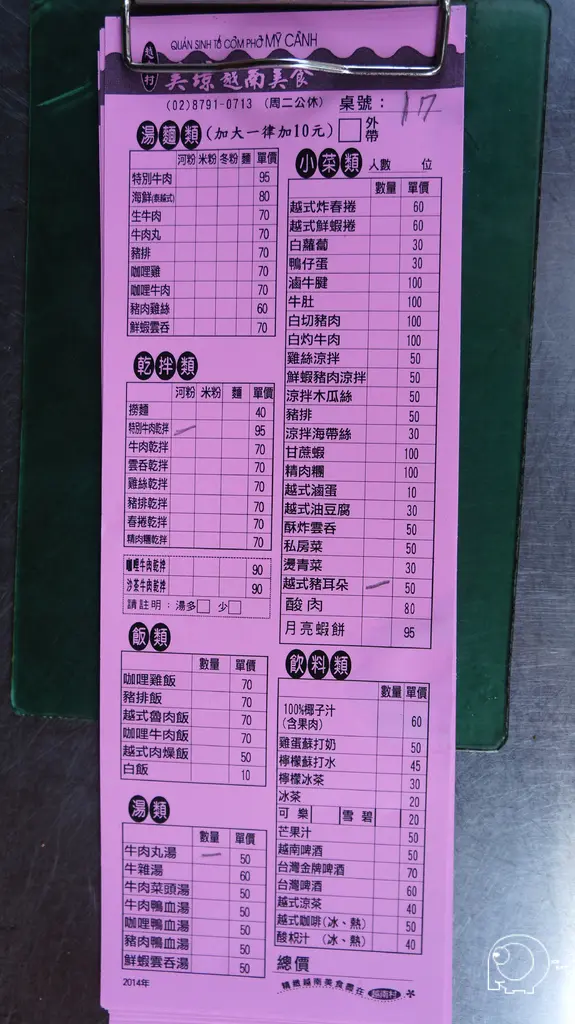 越南村
QUÁN SINH TỐ CƠM PHỞ MỸ CẢNH
美琼越南美食
(02)8791-0713 (周二公休) 桌號：17
湯麵類 (加大一律加10元) 外帶
河粉 米粉 冬粉 麵 單價
特別牛肉 95
海鮮(泰越式) 80
生牛肉 70
牛肉丸 70
豬排 70
咖哩雞 70
咖哩牛肉 70
豬肉雞絲 60
鮮蝦雲吞 70
乾拌類
河粉 米粉 麵 單價
撈麵 40
特別牛肉乾拌 95
牛肉乾拌 70
雲吞乾拌 70
雞絲乾拌 70
豬排乾拌 70
春捲乾拌 70
精肉糰乾拌 70
咖哩牛肉乾拌 90
沙茶牛肉乾拌 90
請註明：湯多 少
飯類
數量 單價
咖哩雞飯 70
豬排飯 70
越式魯肉飯 70
咖哩牛肉飯 70
越式肉燥飯 50
白飯 10
湯類
數量 單價
牛肉丸湯 50
牛雜湯 60
牛肉菜頭湯 50
牛肉鴨血湯 50
咖哩鴨血湯 50
豬肉鴨血湯 50
鮮蝦雲吞湯 50
2014年
小菜類 人數 位
數量 單價
越式炸春捲 60
越式鮮蝦捲 60
白蘿蔔 30
鴨仔蛋 30
滷牛腱 100
牛肚 100
白切豬肉 100
白灼牛肉 100
雞絲涼拌 50
鮮蝦豬肉涼拌 50
涼拌木瓜絲 50
豬排 50
涼拌海帶絲 30
甘蔗蝦 100
精肉糰 100
越式滷蛋 10
越式油豆腐 30
酥炸雲吞 50
私房菜 50
燙青菜 30
越式豬耳朵 50
酸肉 80
月亮蝦餅 95
飲料類
數量 單價
100%椰子汁
(含果肉) 60
雞蛋蘇打奶 50
檸檬蘇打水 45
檸檬冰茶 30
冰茶 20
可樂 雪碧 20
芒果汁 50
越南啤酒 50
台灣金牌啤酒 70
台灣啤酒 60
越式涼茶 40
越式咖啡(冰、熱) 50
酸枳汁 (冰、熱) 40
總價
精緻越南美食盡在 越南村